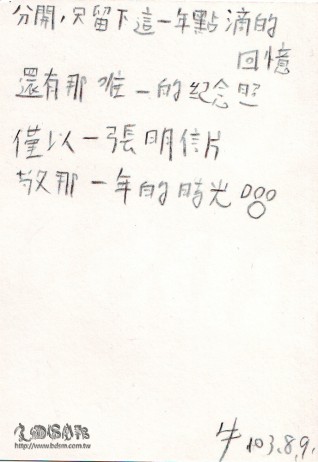 分開，只留下這一年點滴的
回憶
還有那唯一的紀念照
僅以一張明信片
敬那一年的時光
http://www.bdsm.com.tw
牛 103.8.9.